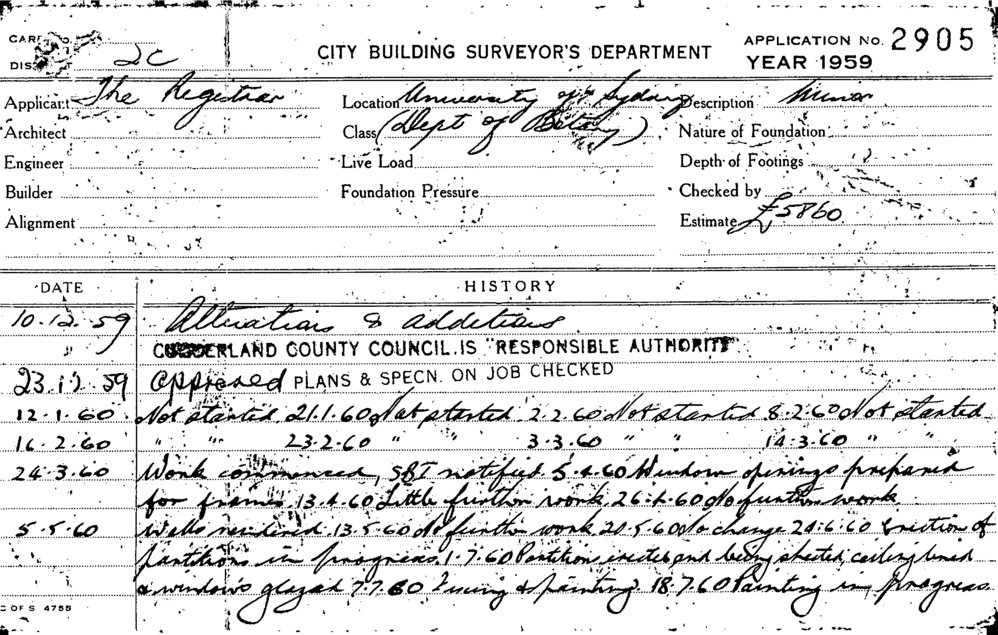 CARD No.
DIS 2C
CITY BUILDING SURVEYOR'S DEPARTMENT
APPLICATION No. 2905
YEAR 1959
Applicant The Registrar
Location University of Sydney
Description Minor
Architect
Class (Dept of Botany)
Nature of Foundation
Engineer
Live Load
Depth of Footings
Builder
Foundation Pressure
Checked by
Alignment
Estimate £5860
DATE HISTORY
10.12.59 Alterations & additions
CUMBERLAND COUNTY COUNCIL IS "RESPONSIBLE AUTHORITY"
23.12.59 Approved PLANS & SPECN. ON JOB CHECKED
12.1.60 Not started 21.1.60 Not started 2.2.60 Not started 8.2.60 Not started
16.2.60 " " 23.2.60 " " 3.3.60 " " 14.3.60 " "
24.3.60 Work commenced, SBI notified 5.4.60 Window openings prepared
for frames 13.4.60 Little further work 26.4.60 No further work
5.5.60 Walls rendered 13.5.60 No further work 20.5.60 No change 24.6.60 Erection of
partitions in progress 1.7.60 Partitions erected and being sheeted, ceiling lined
& windows glazed 7.7.60 Fixing & painting 18.7.60 Painting in progress
C OF S 4755